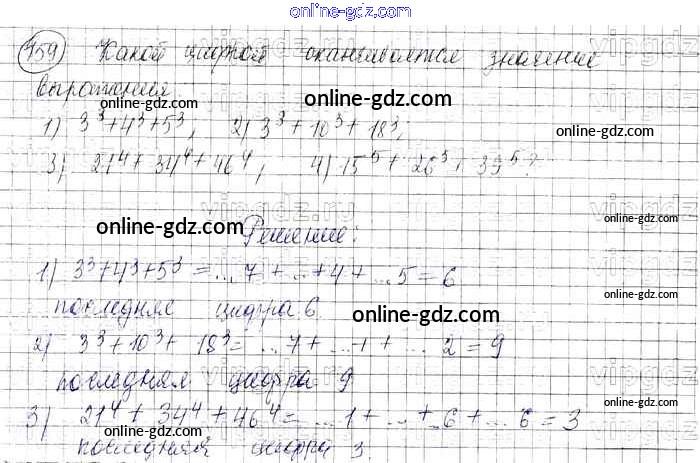 online-gdz.com
959 Какой цифрой оканчивается значение
выражения
online-gdz.com online-gdz.com
1) 3³+4³+5³; 2) 3³+10³+18³;
online-gdz.com
3) 21⁴+34⁴+46⁴; 4) 15⁵+26⁵+39⁵?
vipgdz.ru
online-gdz.com
online-gdz.com
Решение:
1) 3³+4³+5³=...7+...+4+...5=6
online-gdz.com
последняя цифра 6.
online-gdz.com
2) 3³+10³+18³=...7+...+...2=9
online-gdz.com
последняя цифра 9
3) 21⁴+34⁴+46⁴=...1+...+6+...6=3
online-gdz.com
последняя цифра 3.
online-gdz.com